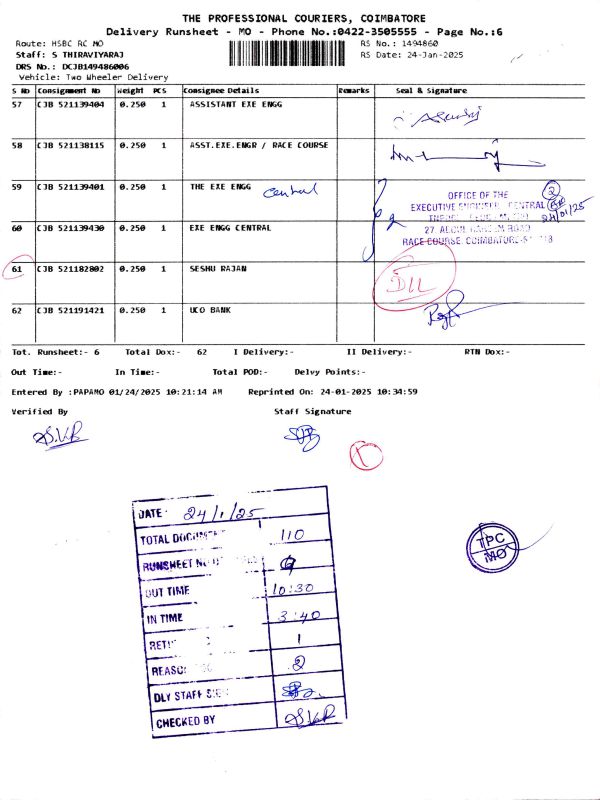 THE PROFESSIONAL COURIERS, COIMBATORE
Delivery Runsheet - MO - Phone No.:0422-3505555 - Page No.:6
Route: HSBC RC MO
RS No.: 1494860
Staff: S THIRAVIYARAJ
RS Date: 24-Jan-2025
DRS No.: DCJB149486006
Vehicle: Two Wheeler Delivery
S No Consignment No Weight PCS Consignee Details Remarks Seal & Signature
57 CJB 521139404 0.250 1 ASSISTANT EXE ENGG
58 CJB 521138115 0.250 1 ASST.EXE.ENGR / RACE COURSE
59 CJB 521139401 0.250 1 THE EXE ENGG central
OFFICE OF THE
EXECUTIVE ENGINEER, CENTRAL
24/01/25
60 CJB 521139430 0.250 1 EXE ENGG CENTRAL
RACE COURSE, COIMBATORE
61 CJB 521182802 0.250 1 SESHU RAJAN
62 CJB 521191421 0.250 1 UCO BANK
Tot. Runsheet:- 6 Total Dox:- 62 I Delivery:- II Delivery:- RTN Dox:-
Out Time:- In Time:- Total POD:- Delvy Points:-
Entered By :PAPAMO 01/24/2025 10:21:14 AM Reprinted On: 24-01-2025 10:34:59
Verified By Staff Signature
DATE: 24/1/25
TOTAL 110
RUNSHEET
OUT TIME 10:30
IN TIME 3:40
1
2
DLY STAFF
CHECKED BY
TPC
MO